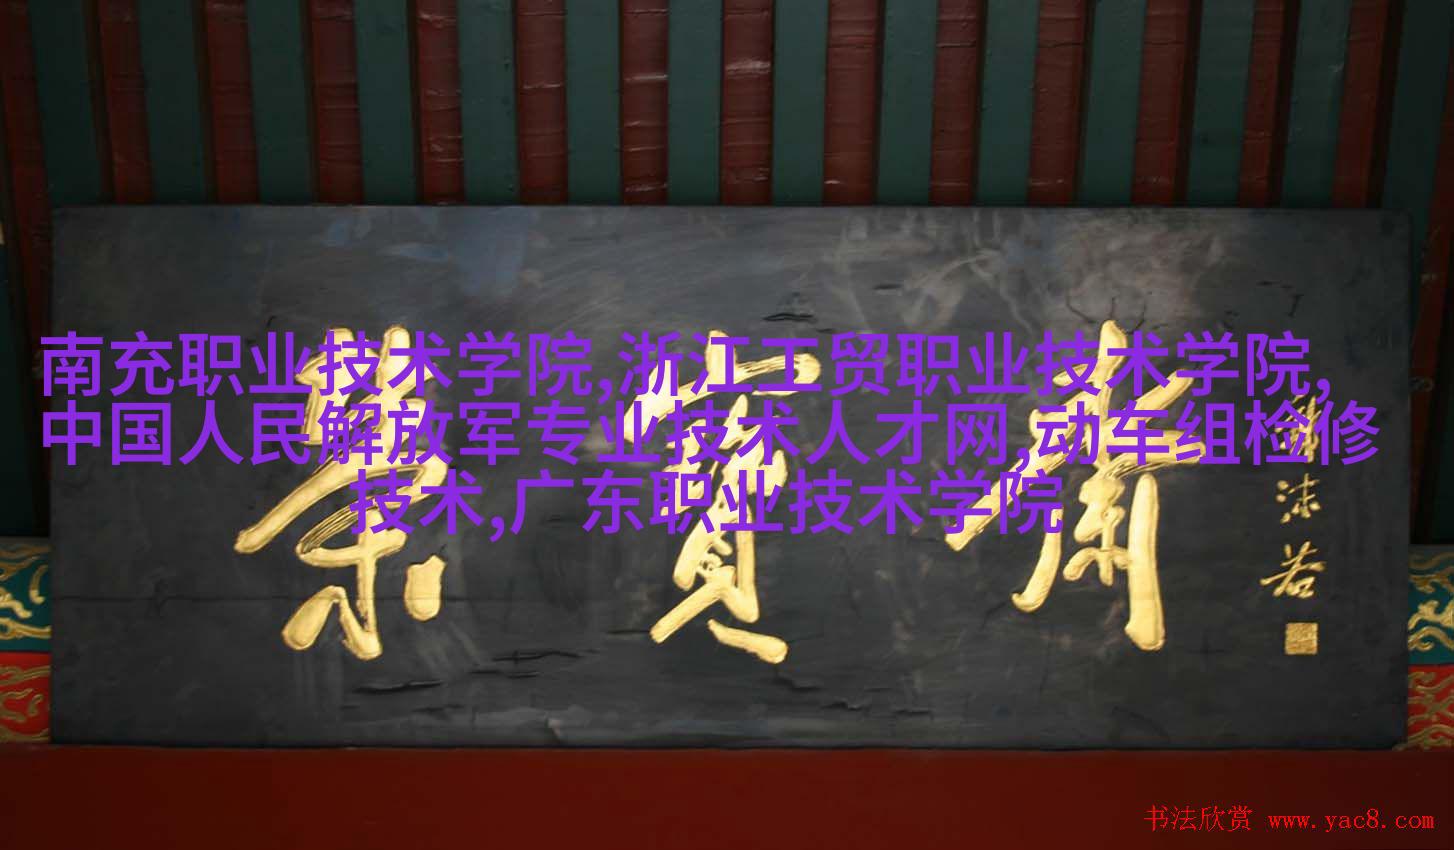 南充职业技术学院,浙江工贸职业技术学院,
中国人民解放军专业技术人才网,动车组检修
技术,广东职业技术学院
榮寶齋
沫若
书法欣赏 www.yac8.com